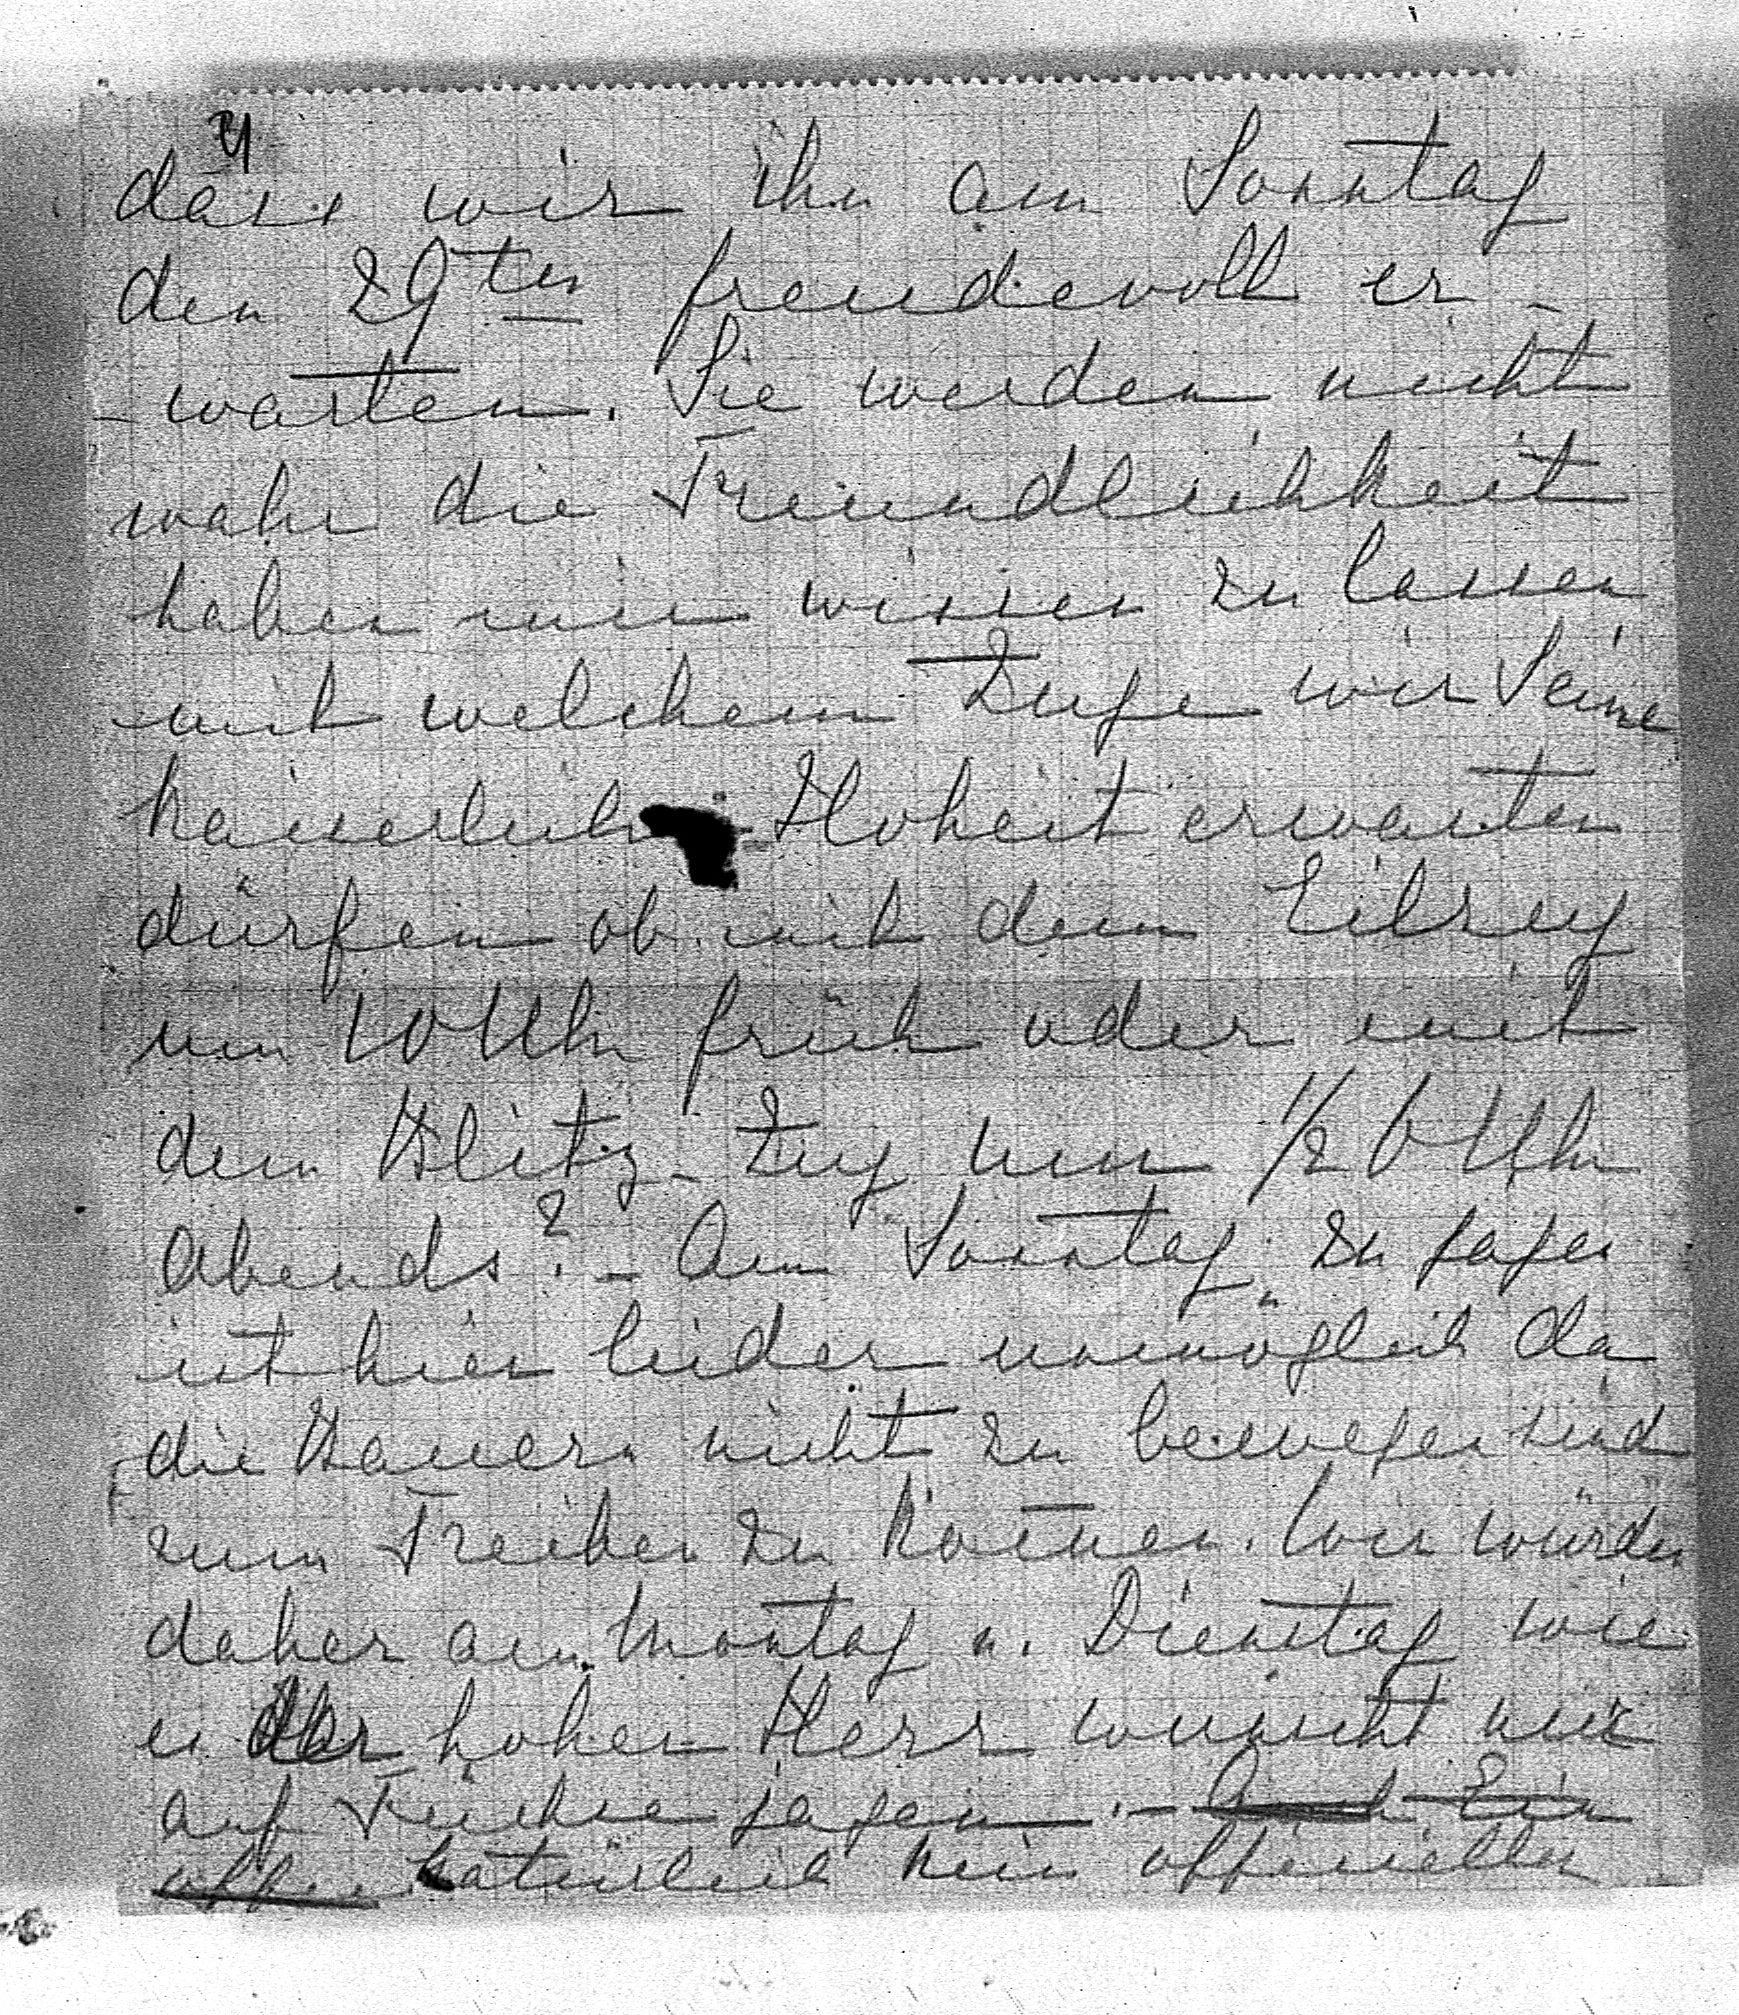 dass wir ihn am Sonntag
den 29ten freudevoll er-
-warten. Sie werden nicht
wahr die Freundlichkeit
haben mir wissen zu lassen
mit welchem Zuge wir Seine
kaiserliche Hoheit erwarten
dürfen ob mit dem Eilzug
um 10 Uhr früh oder mit
dem Blitz-Zug um 1/2 6 Uhr
Abends? - Am Sonntag zu jagen
ist hier leider unmöglich da
die Bauern nicht zu bewegen sind
zum Treiben zu kommen. Wir würden
daher am Montag u. Dienstag wie
es der hohe Herr wünscht nur
auf Füchse jagen. - Auch Ein
offic natürlich kein officieller